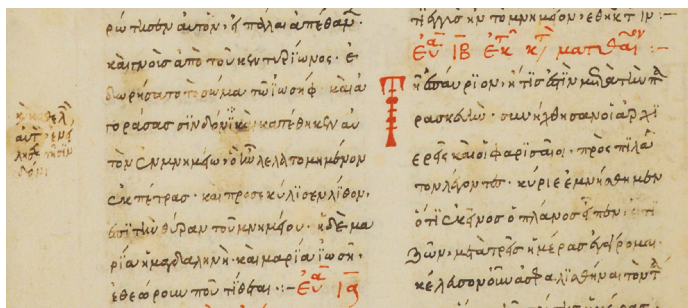 ρώτησεν αὐτὸν, εἰ πάλαι ἀπέθαν
καὶ γνοὺς ἀπὸ τοῦ κεντυρίωνος· ἐ
δωρήσατο τὸ σῶμα τῶ ἰωσήφ· καὶ ἀ
γοράσας σινδόνα καὶ κατέθηκεν αὐ
τὸν ἐν μνημείω, ὃ ἦν λελατομημένον
ἐκ πέτρας· καὶ προσεκύλισεν λίθον,
ἐπὶ τὴν θύραν τοῦ μνημείου· ἡ δὲ μα
ρία ἡ μαγδαληνὴ· καὶ μαρία ἰωσῆ,
ἐθεώρουν ποῦ τίθεται:- Εὐα ΙΑ
κ καθελ
αὐτ ἐνεί
λησε τῆ σιν
δόνι
μνημεῖον, ἔθηκ τ ΙΝ:
Εὐα ΙΒ ἐκ τ κτ ματθαῖον:-
Τῆ ἐπαύριον, ἥτις ἐστὶν μετὰ τὴν πα
ρασκευὴν· συνήχθησαν οἱ ἀρχι
ερεῖς καὶ οἱ φαρισαῖοι· πρὸς πιλᾶ
τον λέγοντες· κύριε ἐμνήσθημεν
ὅτι ἐκεῖνος ὁ πλάνος εἶπεν, ἔτι
ζῶν, μετὰ τρεῖς ἡμέρας ἐγείρομαι·
κέλευσον οὖν ἀσφαλισθῆναι τὸν τά